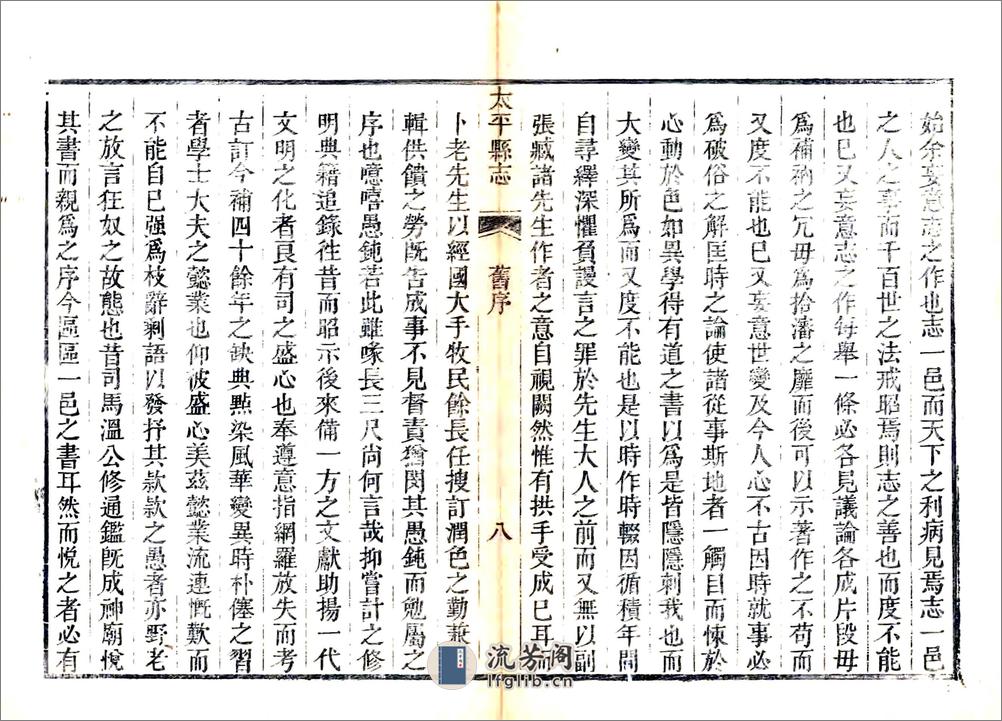 始余妄意志之作也志一邑而天下之利病見焉志一邑
之人之事而千百世之法戒昭焉則志之善也而度不能
也已又妄意志之作每舉一條必各見議論各成片段毋
爲補衲之冗毋爲拾瀋之靡而後可以示著作之不苟而
又度不能也已又妄意世變及今人心不古因時就事必
爲破俗之解匡時之論使諸從事斯地者一觸目而悚於
心動於色如異學得有道之書以爲是皆隱隱刺我也而
大變其所爲而又度不能也是以時作時輟因循積年間
自尋繹深懼負謾言之罪於先生大人之前而又無以副
張臧諸先生作者之意自視闕然惟有拱手受成已耳而
太平縣志
舊序
八
卜老先生以經國大手牧民餘長任搜訂潤色之勤兼
輯供饋之勞旣告成事不見督責猶閔其愚鈍而勉屬之
序也噫嘻愚鈍若此雖喙長三尺尚何言哉抑嘗計之修
明典籍追錄徃昔而昭示後來備一方之文獻助揚一代
文明之化者良有司之盛心也奉遵意指網羅放失而考
古訂今補四十餘年之缺典點染風華變異時朴僿之習
者學士大夫之懿業也仰被盛心美茲懿業流連慨歎而
不能自已强爲枝辭剩語以發抒其款款之愚者亦野老
之放言狂奴之故態也昔司馬溫公修通鑑旣成神廟悅
其書而親爲之序今區區一邑之書耳然而悅之者必有
流芳阁
lfglib.cn